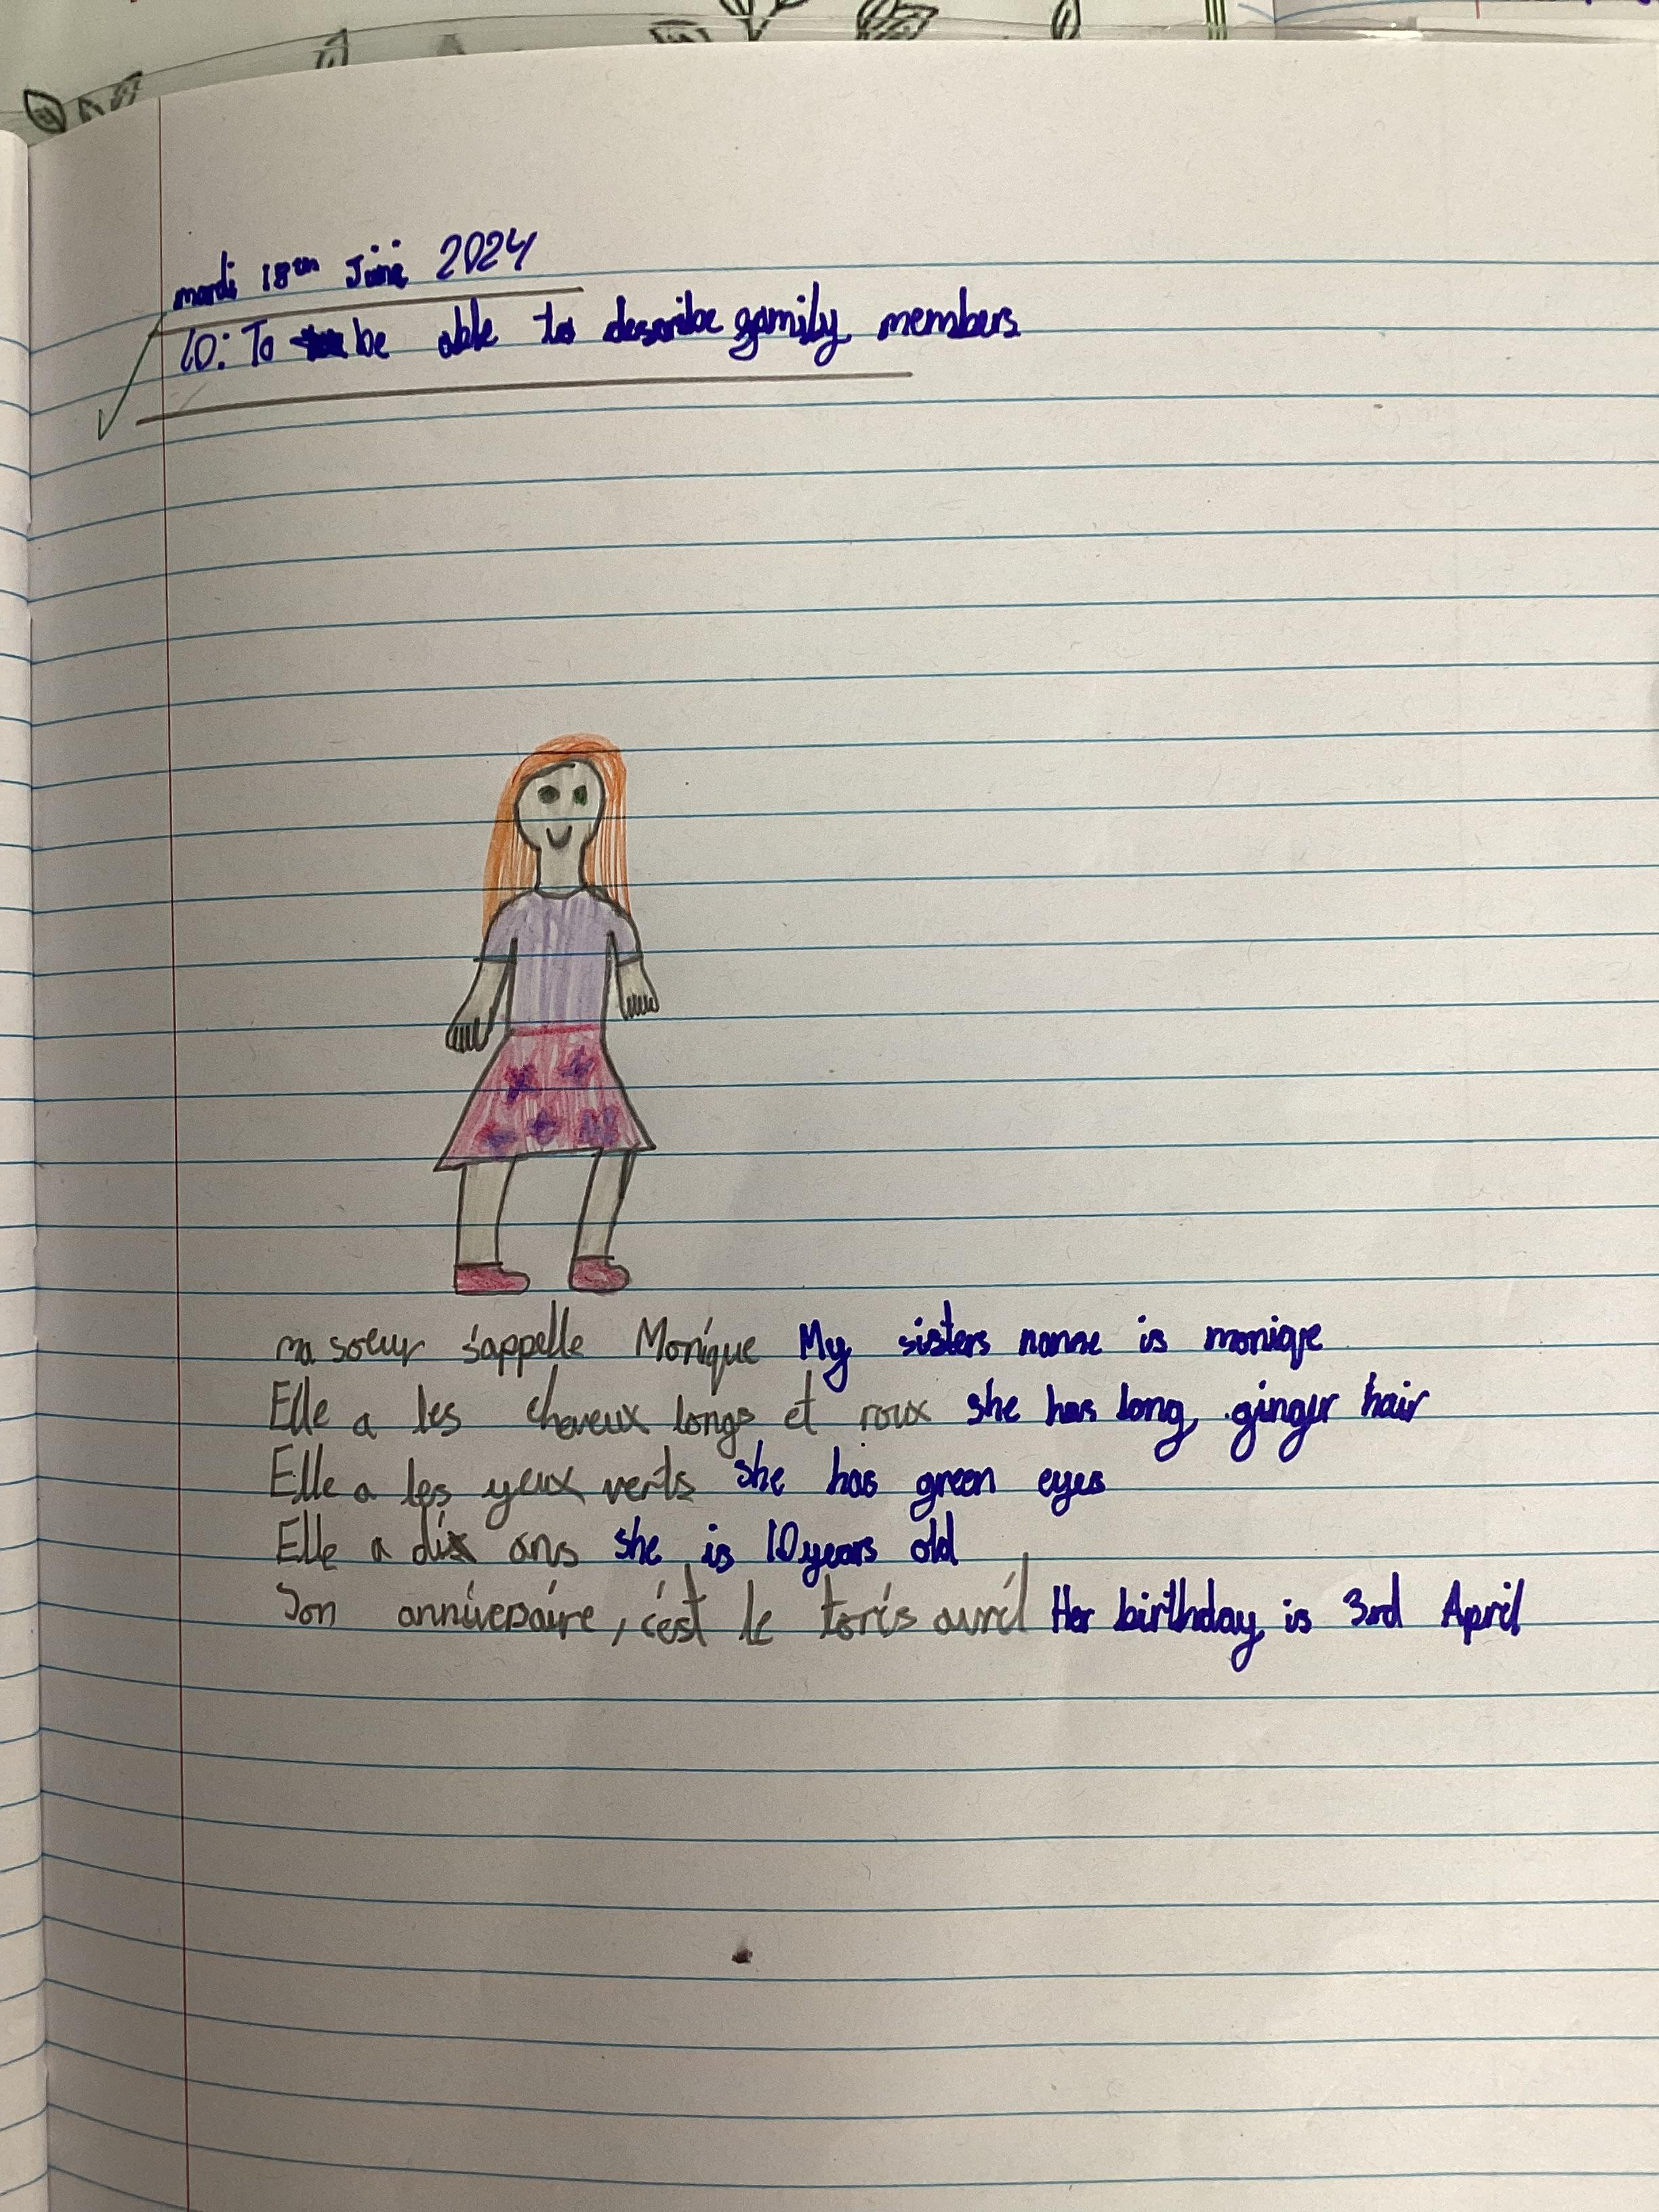 mardi 18th June 2024
LO: To be able to describe family members
ma soeur s'appelle Monique My sisters name is moniqe
Elle a les cheveux longs et roux she has long ginger hair
Elle a les yeux verts she has green eyes
Elle a dix ans she is 10 years old
Son anniversaire, c'est le toris avril Her birthday is 3rd April